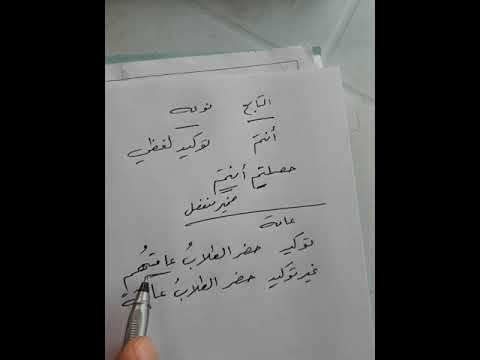 التابع نوعه
أنتم توكيد لفظي
حصلتم أنتم
ضمير منفصل
عامة
توكيد حضر الطلابُ عامتهُم
غير توكيد حضر الطلابُ